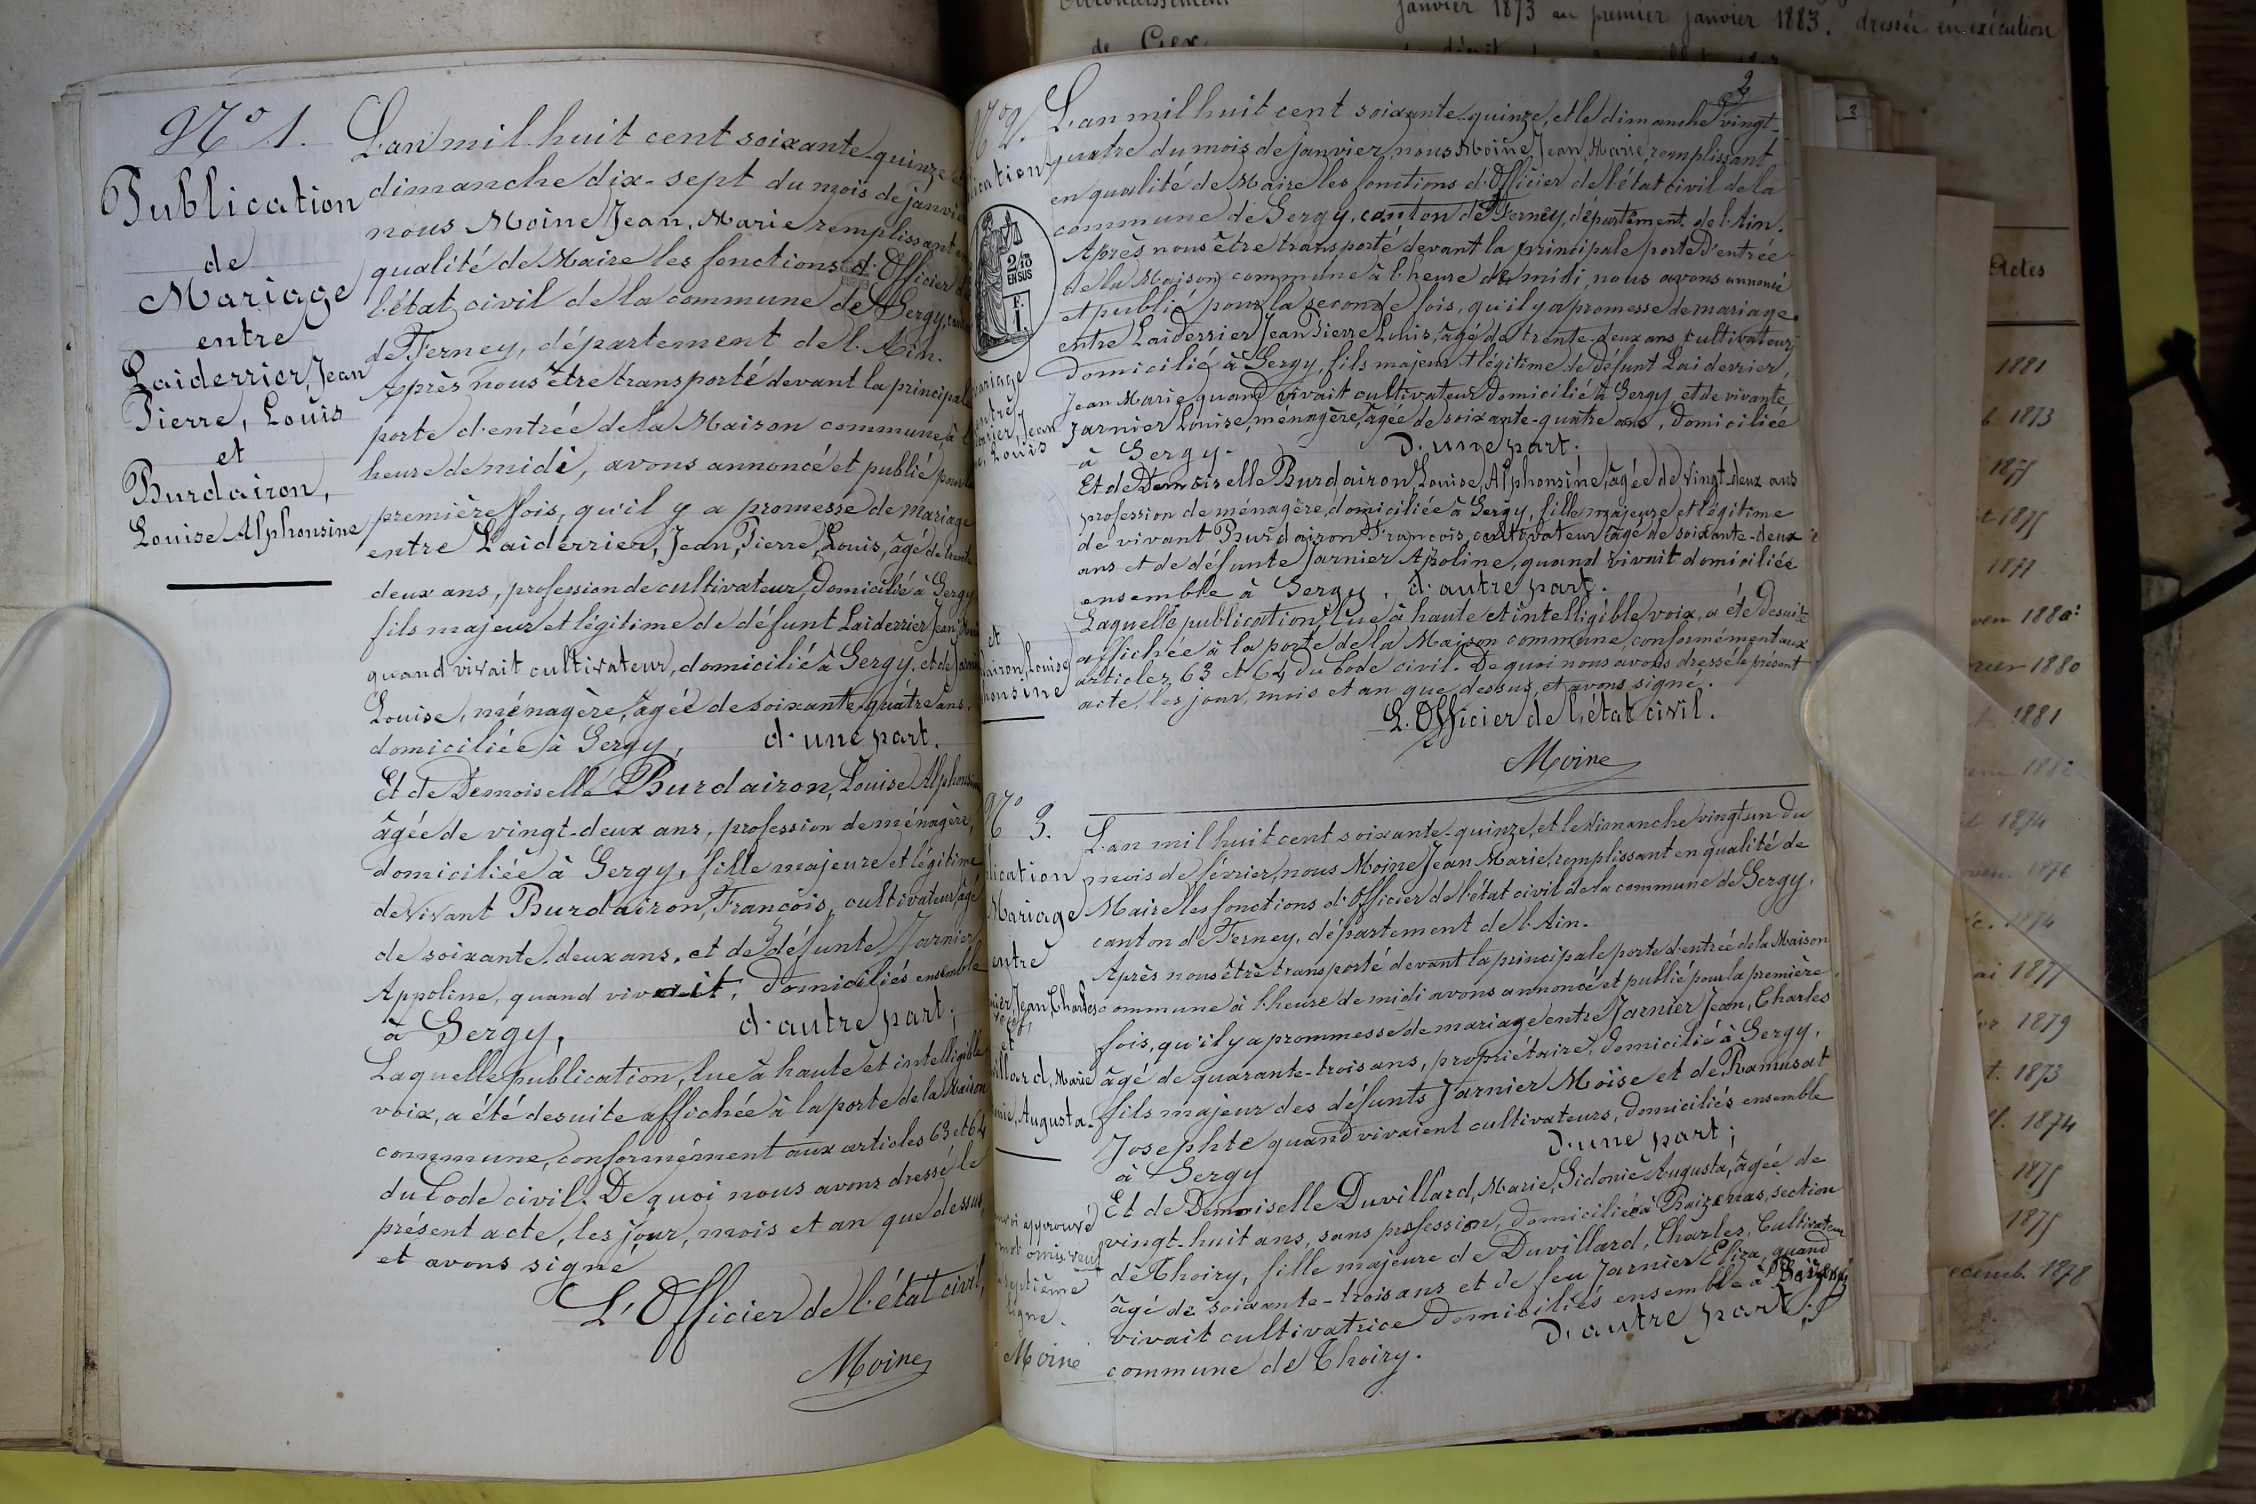 N° 1.
Publication
de
Mariage
entre
Laiderrier, Jean
Pierre, Louis
et
Burdairon,
Louise Alphonsine
L'an mil huit cent soixante-quinze
dimanche dix-sept du mois de janvi
nous Moine Jean, Marie remplissant
qualité de Maire les fonctions d'Officier
l'état civil de la commune de Sergy,
de Ferney, département de l'Ain.
Après nous être transporté devant la principal
porte d'entrée de la Maison commune, à l
heure de midi, avons annoncé et publié pour
première fois, qu'il y a promesse de mariage
entre Laiderrier, Jean, Pierre, Louis, âgé de trente
deux ans, profession de cultivateur, domicilié à Sergy
fils majeur et légitime de défunt Laiderrier Jean
quand vivait cultivateur, domicilié à Sergy, et de
Louise, ménagère, âgée de soixante-quatre ans,
domiciliée à Sergy, d'une part.
Et de Demoiselle Burdairon, Louise Alphons
âgée de vingt-deux ans, profession de ménagère,
domiciliée à Sergy, fille majeure et légitime
de vivant Burdairon, François, cultivateur, âgé
de soixante-deux ans, et de défunte Jarnier
Appoline, quand vivait, domiciliés ensemble
à Sergy, d'autre part;
Laquelle publication, lue à haute et intelligible
voix, a été de suite affichée à la porte de la Maison
commune, conformément aux articles 63 et 64
du Code civil. De quoi nous avons dressé le
présent acte, les jour, mois et an que dessus,
et avons signé
L'Officier de l'état civil,
Moine
janvier 1873 au premier janvier 1883. dressée en exécution
de Gex,
2
N° 2.
L'an mil huit cent soixante-quinze, et le dimanche vingt-
quatre du mois de janvier, nous Moine Jean, Marie, remplissant
en qualité de Maire les fonctions d'Officier de l'état civil de la
commune de Sergy, canton de Ferney, département de l'Ain.
Après nous être transporté devant la principale porte d'entrée
de la Maison commune à l'heure de midi, nous avons annoncé
et publié pour la seconde fois, qu'il y a promesse de mariage
entre Laiderrier Jean Pierre Louis, âgé de trente-deux ans, cultivateur,
domicilié à Sergy, fils majeur & légitime de défunt Laiderrier,
Jean Marie quand vivait cultivateur domicilié à Sergy et de vivante
Jarnier Louise, ménagère, âgée de soixante-quatre ans, domiciliée
à Sergy. d'une part.
Et de Demoiselle Burdairon, Louise, Alphonsine, âgée de vingt-deux ans
profession de ménagère, domiciliée à Sergy, fille majeure et légitime
de vivant Burdairon François, cultivateur âgé de soixante-deux
ans et de défunte Jarnier Apoline, quand vivait domiciliée
ensemble à Sergy, d'autre part.
Laquelle publication, lue à haute et intelligible voix, a été de suite
affichée à la porte de la Maison commune, conformément aux
articles 63 et 64 du code civil. De quoi nous avons dressé le présent
acte, les jour, mois et an que dessus, et avons signé.
L'Officier de l'état civil.
Moine
lication
2/10
EN SUS
F.
1.
ariage
entre
Jean
Louis
et
dairon, Louise
honsine
N° 3.
L'an mil huit cent soixante-quinze, et le dimanche vingt un du
mois de février, nous Moine Jean Marie, remplissant en qualité de
Maire les fonctions d'Officier de l'état civil de la commune de Sergy,
canton de Ferney, département de l'Ain.
Après nous être transporté devant la principale porte d'entrée de la Maison
commune à l'heure de midi avons annoncé et publié pour la première
fois, qu'il y a prommesse de mariage entre Jarnier Jean, Charles
âgé de quarante-trois ans, propriétaire, domicilié à Sergy,
fils majeur des défunts Jarnier Moïse et de Ramusat
Josephte quand vivaient cultivateurs, domiciliés ensemble
à Sergy d'une part;
Et de Demoiselle Duvillard, Marie, Sidonie Augusta, âgée de
vingt-huit ans, sans profession, domiciliée à section
de Thoiry, fille majeure de Duvillard, Charles, Cultivateur
âgé de soixante-trois ans et de feu Jarnier Eliza, quand
vivait cultivatrice domiciliés ensemble à
commune de Thoiry. d'autre part.
lication
Mariage
entre
nier, Jean Charles
et
illard, Marie
Augusta.
approuvé
mot omis veuf
septième
ligne.
Moine
3
Actes
1881
1873
1875
1875
1877
1880
1880
1881
1882
1874
1876
1874
1877
1879
1873
1874
1875
1875
1878